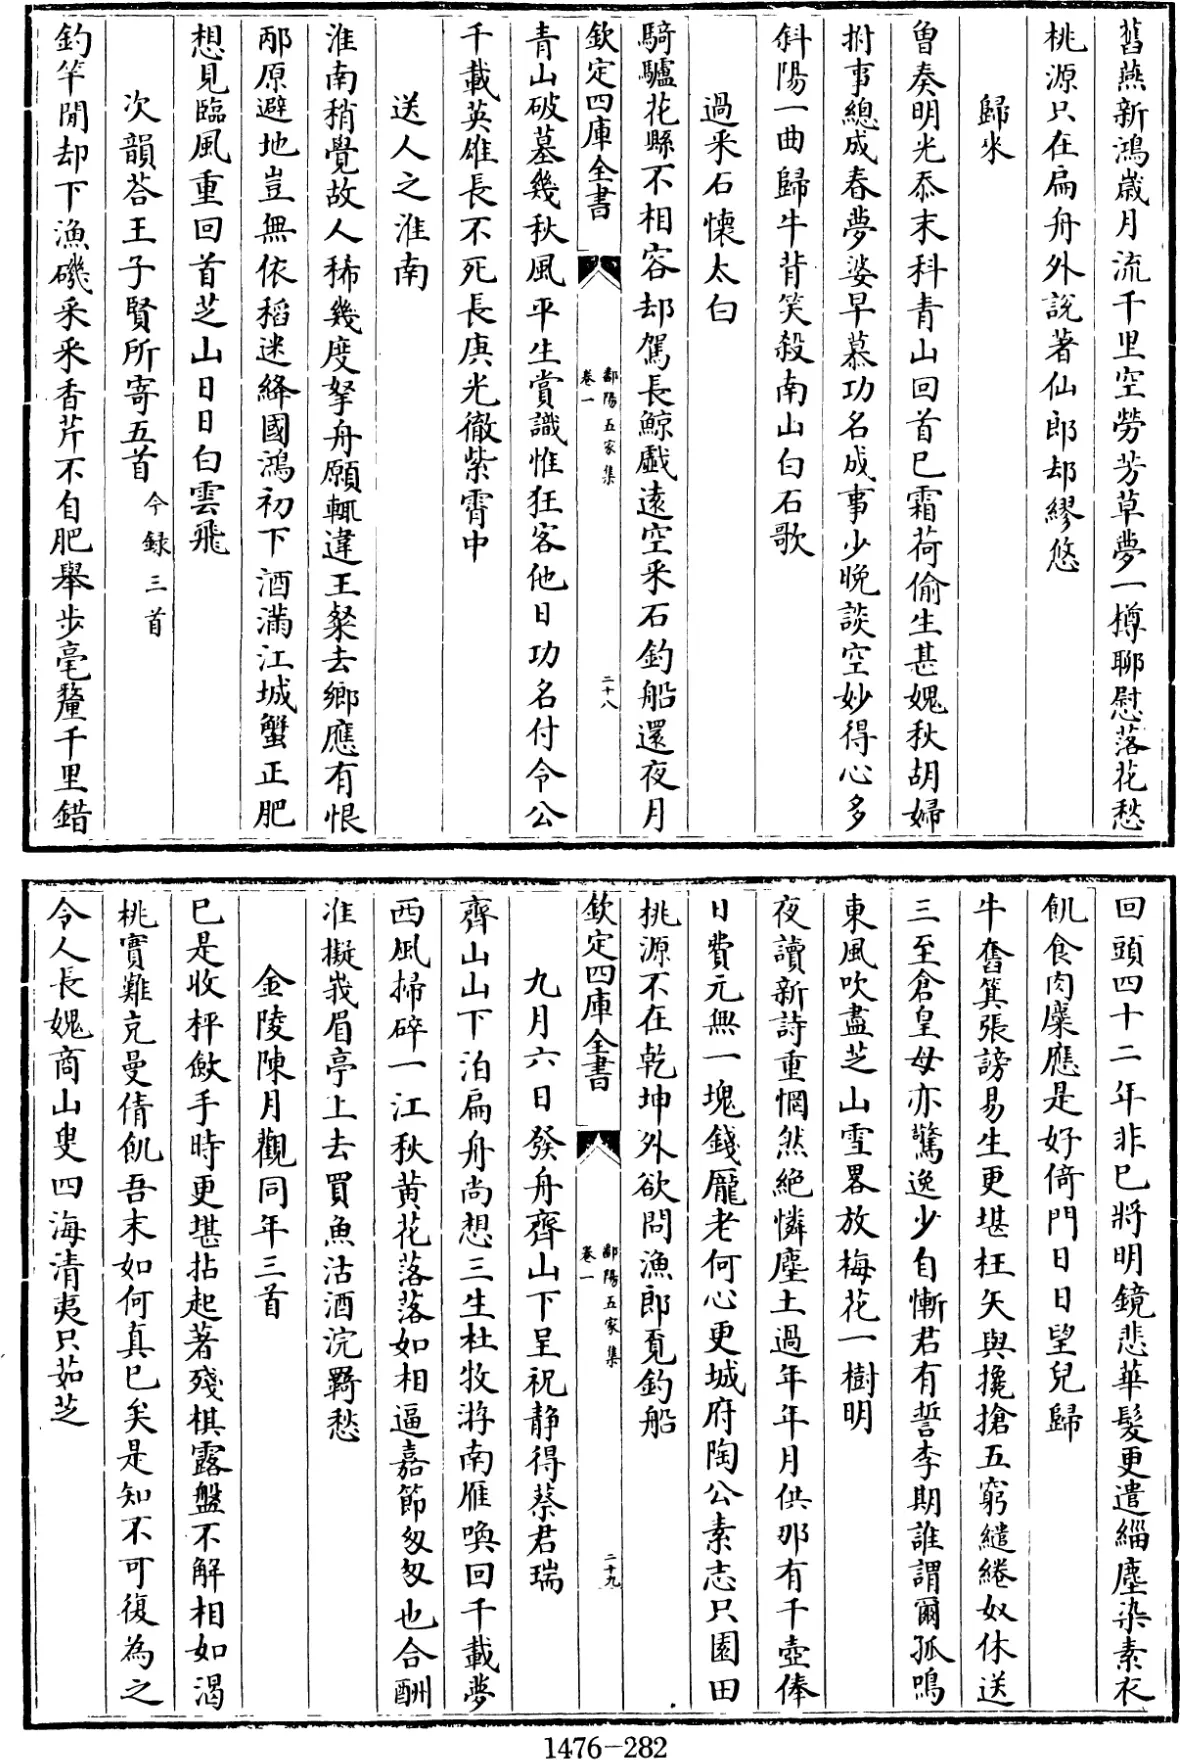 舊燕新鴻歲月流千里空勞芳草夢一樽聊慰落花愁
桃源只在扁舟外說著仙郎却繆悠
歸來
魯奏明光忝末科青山回首已霜荷偷生甚媿秋胡婦
拊事總成春夢婆早慕功名成事少晚談空妙得心多
斜陽一曲歸牛背笑殺南山白石歌
過采石懷太白
騎驢花縣不相容却駕長鯨戲遠空采石釣船還夜月
欽定四庫全書
鄱陽五家集
卷一
二十八
青山破墓幾秋風平生賞識惟狂客他日功名付令公
千載英雄長不死長庚光徹紫霄中
送人之淮南
淮南稍覺故人稀幾度拏舟願輒違王粲去鄉應有恨
邴原避地豈無依稻迷絳國鴻初下酒滿江城蟹正肥
想見臨風重回首芝山日日白雲飛
次韻荅王子賢所寄五首今錄三首
釣竿閒却下漁磯采采香芹不自肥舉步毫釐千里錯
回頭四十二年非已將明鏡悲華髮更遣緇塵染素衣
飢食肉糜應是好倚門日日望兒歸
牛奮箕張謗易生更堪枉矢與攙搶五窮繾綣奴休送
三至倉皇母亦驚逸少自慚君有誓李期誰謂爾孤鳴
東風吹盡芝山雪畧放梅花一樹明
夜讀新詩重惘然絶憐塵土過年年月供那有千壺俸
日費元無一塊錢龐老何心更城府陶公素志只園田
桃源不在乾坤外欲問漁郎覓釣船
欽定四庫全書
鄱陽五家集
卷一
二十九
九月六日發舟齊山下呈祝靜得蔡君瑞
齊山山下泊扁舟尚想三生杜牧游南雁喚回千載夢
西風掃碎一江秋黃花落落如相逼嘉節匆匆也合酬
准擬峩眉亭上去買魚沽酒浣羇愁
金陵陳月觀同年三首
已是收枰斂手時更堪拈起著殘棋露盤不解相如渴
桃實難充曼倩飢吾末如何真已矣是知不可復為之
令人長媿商山叟四海清夷只茹芝
1476-282